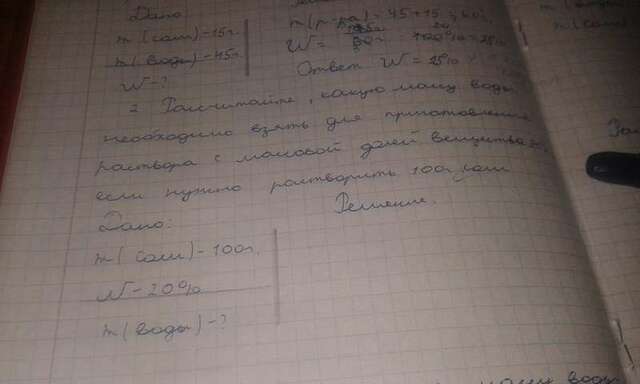 Дано
m(соли)-15г.
m(воды)-45г.
W-?
m(р-ра)=45+15=60г.
W= 100%=25%
Ответ W=25%
2 Рассчитайте, какую массу воды
необходимо взять для приготовления
раствора с массовой долей вещества
если нужно растворить 100г соли
Дано:
Решение.
m(соли)-100г.
W-20%
m(воды)-?